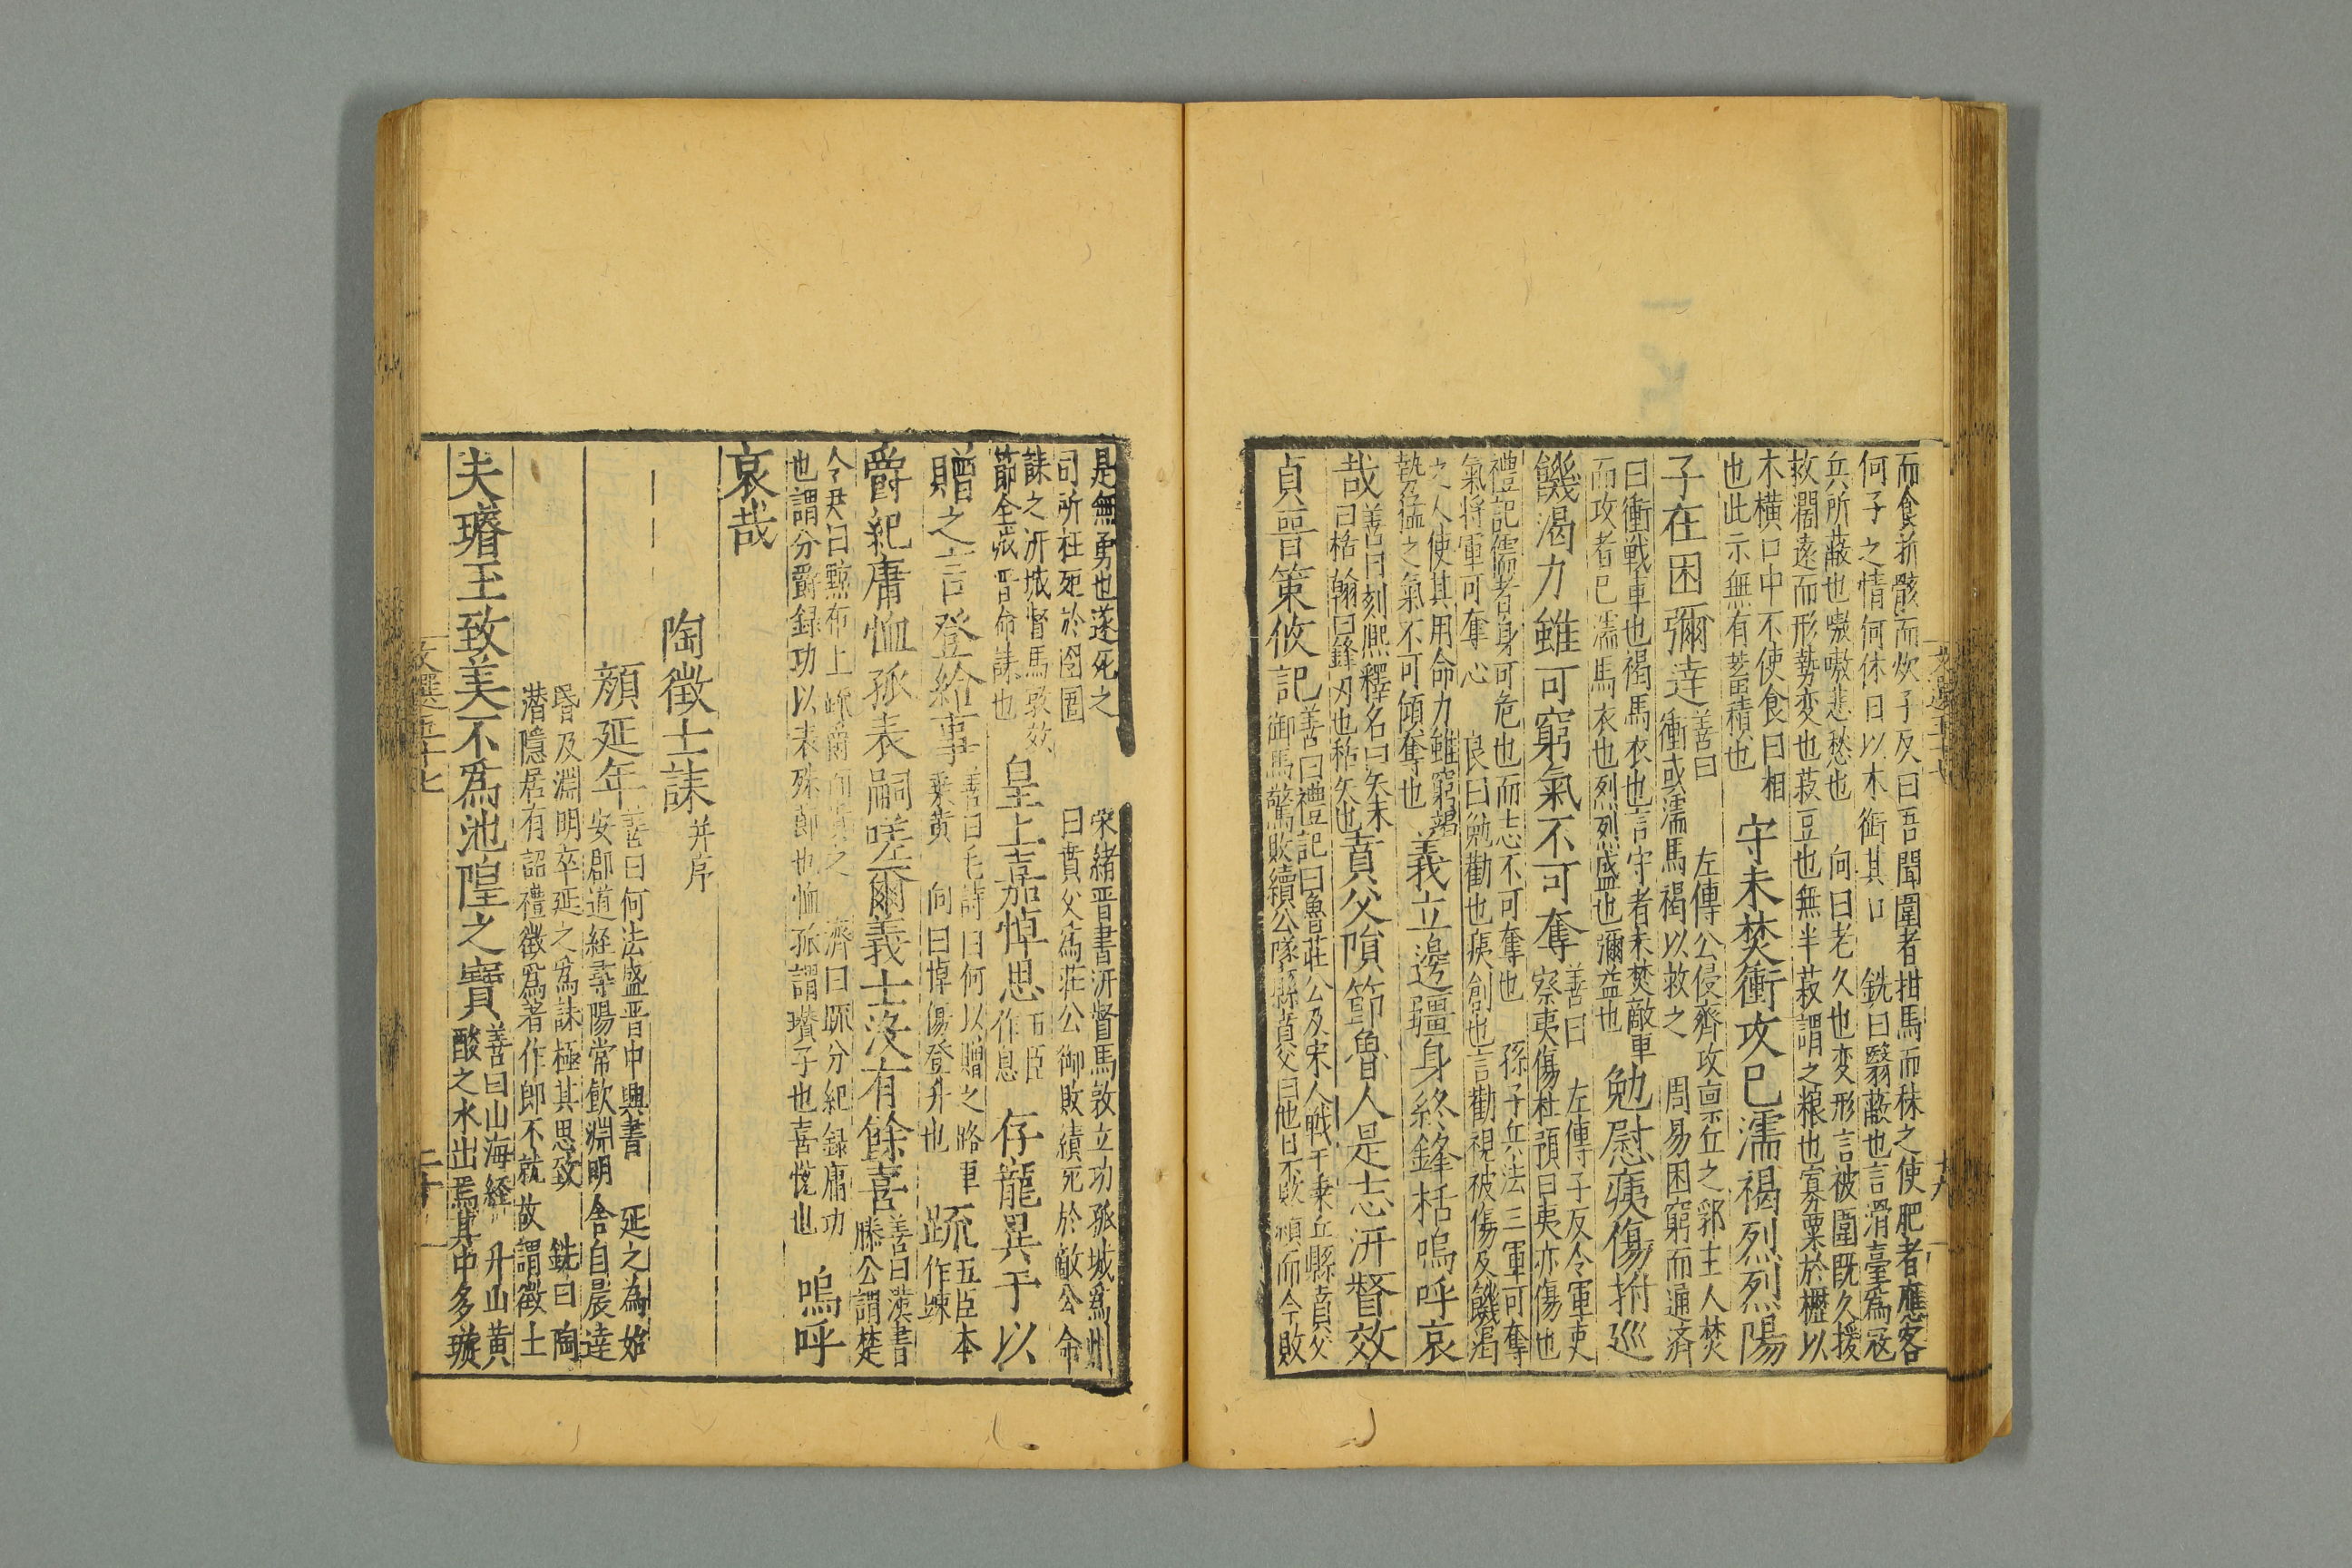 而食折骸而炊子反曰吾聞圍者柑馬而秣之使肥者應客
何子之情何休曰以木銜其口 銑曰翳蔽也言滑臺爲寇
兵所蔽也嗷嗷悲愁也 向曰老久也変形言被圍既久援
救濶遠而形勢変也菽豆也無半菽謂之粮也寡粟於櫪以
木橫口中不使食曰柑
也此示無有蓄積也
守未焚衝攻巳濡褐烈烈陽
子在困彌達
善曰 左傳公侵齊攻廩丘之郛主人焚
衝或濡馬褐以救之 周易困窮而通済
曰衝戦車也褐馬衣也言守者未焚敵車
而攻者巳濡馬衣也烈烈盛也彌益也
勉慰痍傷拊巡
饑渴力雖可窮氣不可奪
善曰 左傳子反令軍吏
察夷傷杜預曰夷亦傷也
禮記儒者身可危也而志不可奪也 孫子兵法三軍可奪
氣将軍可奪心 良曰勉勸也痍創也言勸視被傷及饑渴
之人使其用命力雖窮竭
勢猛之氣不可傾奪也
義立邊疆身終鋒栝嗚呼哀
哉
善曰刘熈釋名曰矢末
曰栝 翰曰鋒刃也栝矢也
賁父隕節魯人是志汧督效
貞晉策攸記
善曰禮記曰魯莊公及宋人戦于乗丘縣賁父
御馬驚敗績公隊縣賁父曰他日不敗績而今敗
是無勇也遂死之 宋緒晋書汧督馬敦立功孤城爲州
司所枉死於囹圄 曰賁父爲莊公御敗績死於敵公命
誄之汧城督馬敦效
節全城晋命誄也
皇上嘉悼思
五臣
作息
存寵異于以
贈之言登給事
善曰毛詩曰何以贈之路車
乗黄 向曰悼傷登升也
疏
五臣本
作踈
爵紀庸恤孤表嗣嗟爾義士沒有餘喜
善曰漢書
滕公謂楚
令尹曰黥布上踈爵而貴之 濟曰踈分紀録庸功
也謂分爵録功以表殊節也恤孤謂瓚子也喜悅也
嗚呼
哀哉
陶徵士誄并序
顔延年
善曰何法盛晋中興書 延之為始
安郡道経尋陽常飲淵明舎自晨達
昏及淵明卒延之爲誄極其思致 銑曰陶
潜隱居有詔禮徵爲著作郎不就故謂徵士
夫璿玉致美不爲池隍之寶
善曰山海経 升山黄
酸之水出焉其中多璇
文選五十七
二十